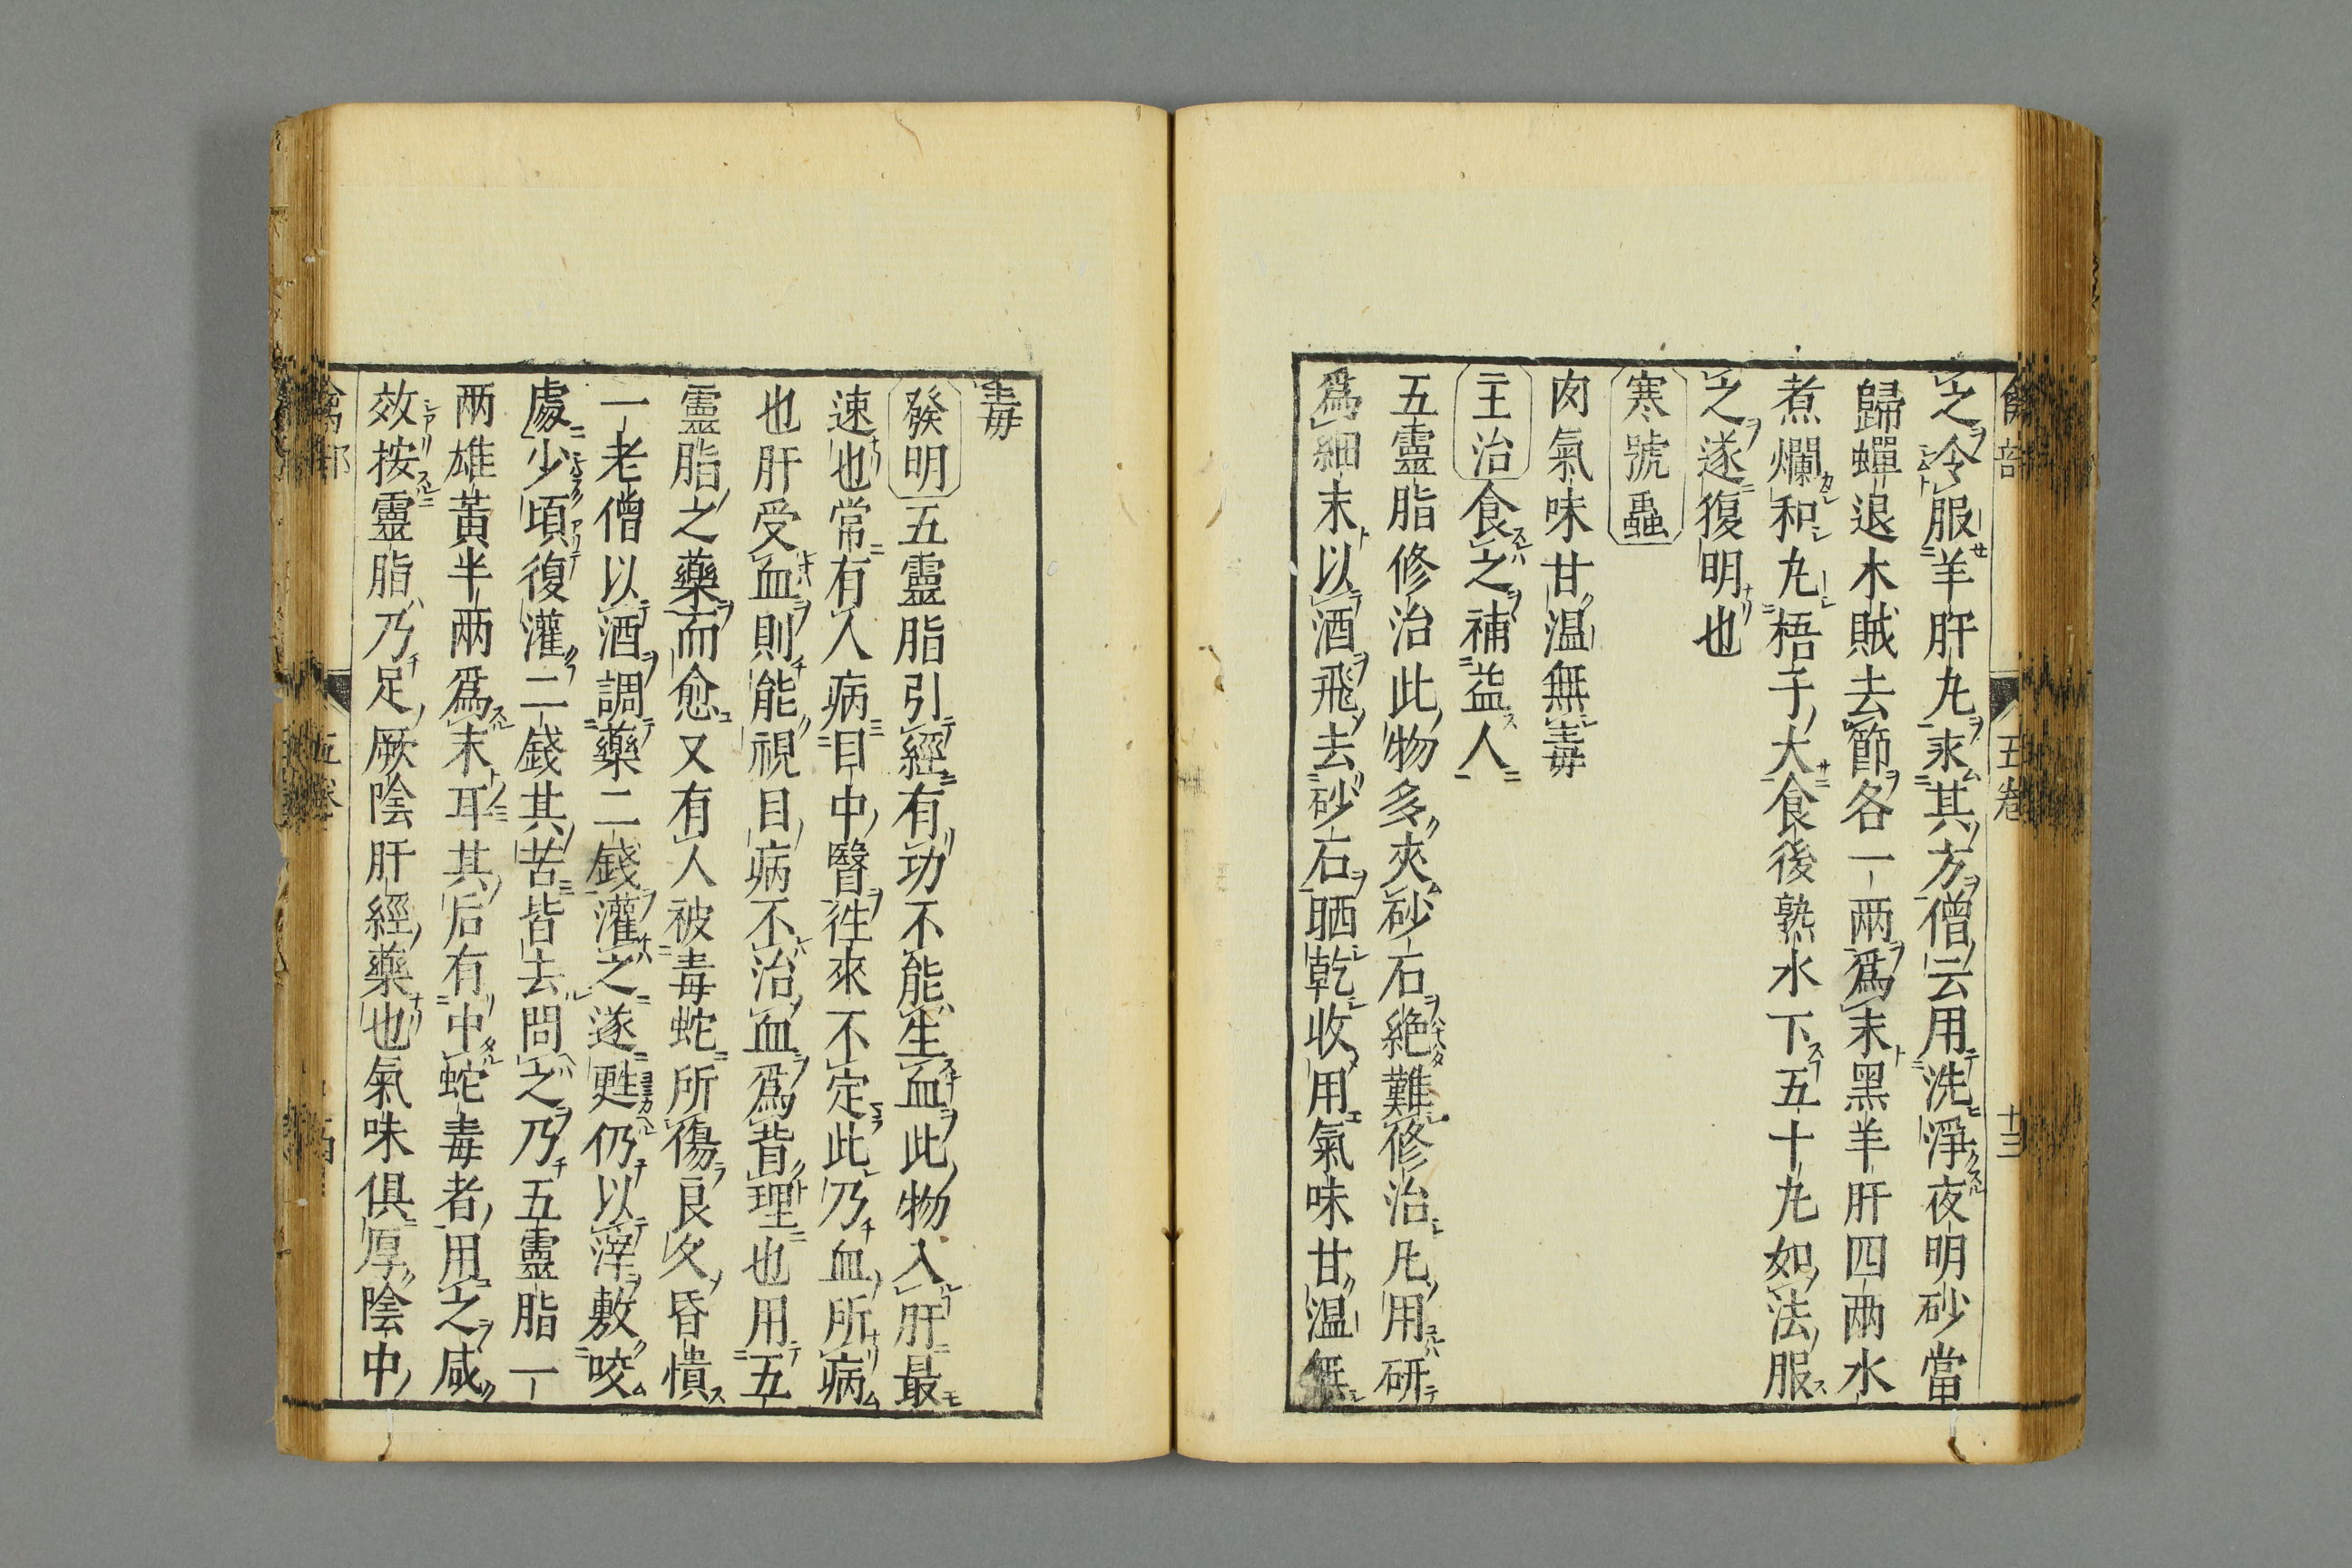 之冷服羊肝丸求其方僧云用洗淨夜明砂當
歸蟬退木賊去節各一兩爲末黑羊肝四兩水
煮爛和丸梧子大食後熟水下五十丸如法服
之遂復明也
寒號蟲
肉氣味甘温無毒
主治食之補益人
五靈脂修治此物多夾砂石絶難修治凡用研
爲細末以酒飛去砂石晒乾收用氣味甘温無
毒
發明五靈脂引經有功不能生血此物入肝最
速也常有人病目中翳徃來不定此乃血所病
也肝受血則能視目病不治血爲背理也用五
靈脂之藥而愈又有人被毒蛇所傷良久昏憒
一老僧以酒調藥二錢灌之遂甦仍以滓敷咬
處少頃復灌二錢其苦皆去問之乃五靈脂一
两雄黃半兩爲末耳其后有中蛇毒者用之咸
效按靈脂乃足厥陰肝經藥也氣味俱厚陰中